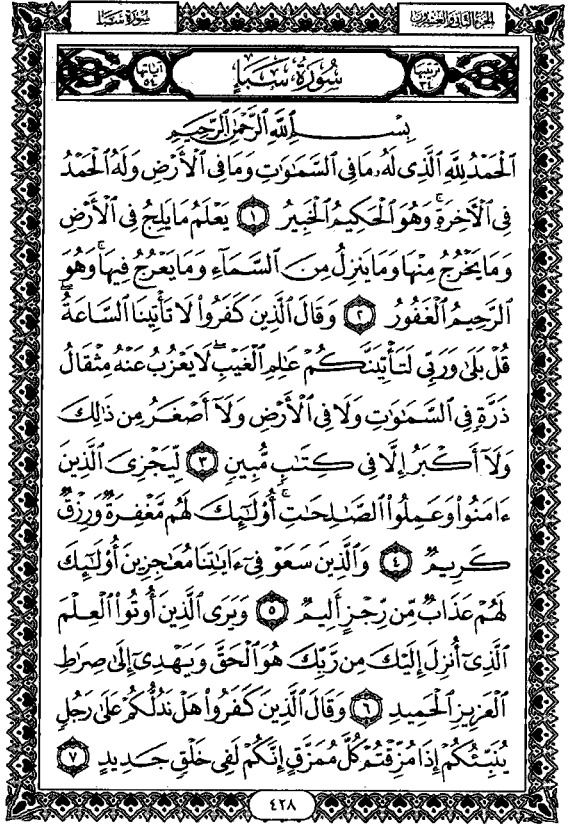 سُورَةُ سَبَإٍ
الجُزْءُ الثَّانِي وَالعِشْرُونَ
ترتيبها ٣٤
سُورَةُ سَبَإٍ
آياتها ٥٤
بِسْمِ ٱللَّهِ ٱلرَّحْمَٰنِ ٱلرَّحِيمِ
ٱلْحَمْدُ لِلَّهِ ٱلَّذِى لَهُۥ مَا فِى ٱلسَّمَٰوَٰتِ وَمَا فِى ٱلْأَرْضِ وَلَهُ ٱلْحَمْدُ
فِى ٱلْءَاخِرَةِ ۚ وَهُوَ ٱلْحَكِيمُ ٱلْخَبِيرُ ١ يَعْلَمُ مَا يَلِجُ فِى ٱلْأَرْضِ
وَمَا يَخْرُجُ مِنْهَا وَمَا يَنزِلُ مِنَ ٱلسَّمَآءِ وَمَا يَعْرُجُ فِيهَا ۚ وَهُوَ
ٱلرَّحِيمُ ٱلْغَفُورُ ٢ وَقَالَ ٱلَّذِينَ كَفَرُوا۟ لَا تَأْتِينَا ٱلسَّاعَةُ ۖ
قُلْ بَلَىٰ وَرَبِّى لَتَأْتِيَنَّكُمْ عَٰلِمِ ٱلْغَيْبِ ۖ لَا يَعْزُبُ عَنْهُ مِثْقَالُ
ذَرَّةٍ فِى ٱلسَّمَٰوَٰتِ وَلَا فِى ٱلْأَرْضِ وَلَآ أَصْغَرُ مِن ذَٰلِكَ
وَلَآ أَكْبَرُ إِلَّا فِى كِتَٰبٍ مُّبِينٍ ٣ لِّيَجْزِىَ ٱلَّذِينَ
ءَامَنُوا۟ وَعَمِلُوا۟ ٱلصَّٰلِحَٰتِ ۚ أُو۟لَٰٓئِكَ لَهُم مَّغْفِرَةٌ وَرِزْقٌ
كَرِيمٌ ٤ وَٱلَّذِينَ سَعَوْ فِىٓ ءَايَٰتِنَا مُعَٰجِزِينَ أُو۟لَٰٓئِكَ
لَهُمْ عَذَابٌ مِّن رِّجْزٍ أَلِيمٌ ٥ وَيَرَى ٱلَّذِينَ أُوتُوا۟ ٱلْعِلْمَ
ٱلَّذِىٓ أُنزِلَ إِلَيْكَ مِن رَّبِّكَ هُوَ ٱلْحَقَّ وَيَهْدِىٓ إِلَىٰ صِرَٰطِ
ٱلْعَزِيزِ ٱلْحَمِيدِ ٦ وَقَالَ ٱلَّذِينَ كَفَرُوا۟ هَلْ نَدُلُّكُمْ عَلَىٰ رَجُلٍ
يُنَبِّئُكُمْ إِذَا مُزِّقْتُمْ كُلَّ مُمَزَّقٍ إِنَّكُمْ لَفِى خَلْقٍ جَدِيدٍ ٧
٤٢٨